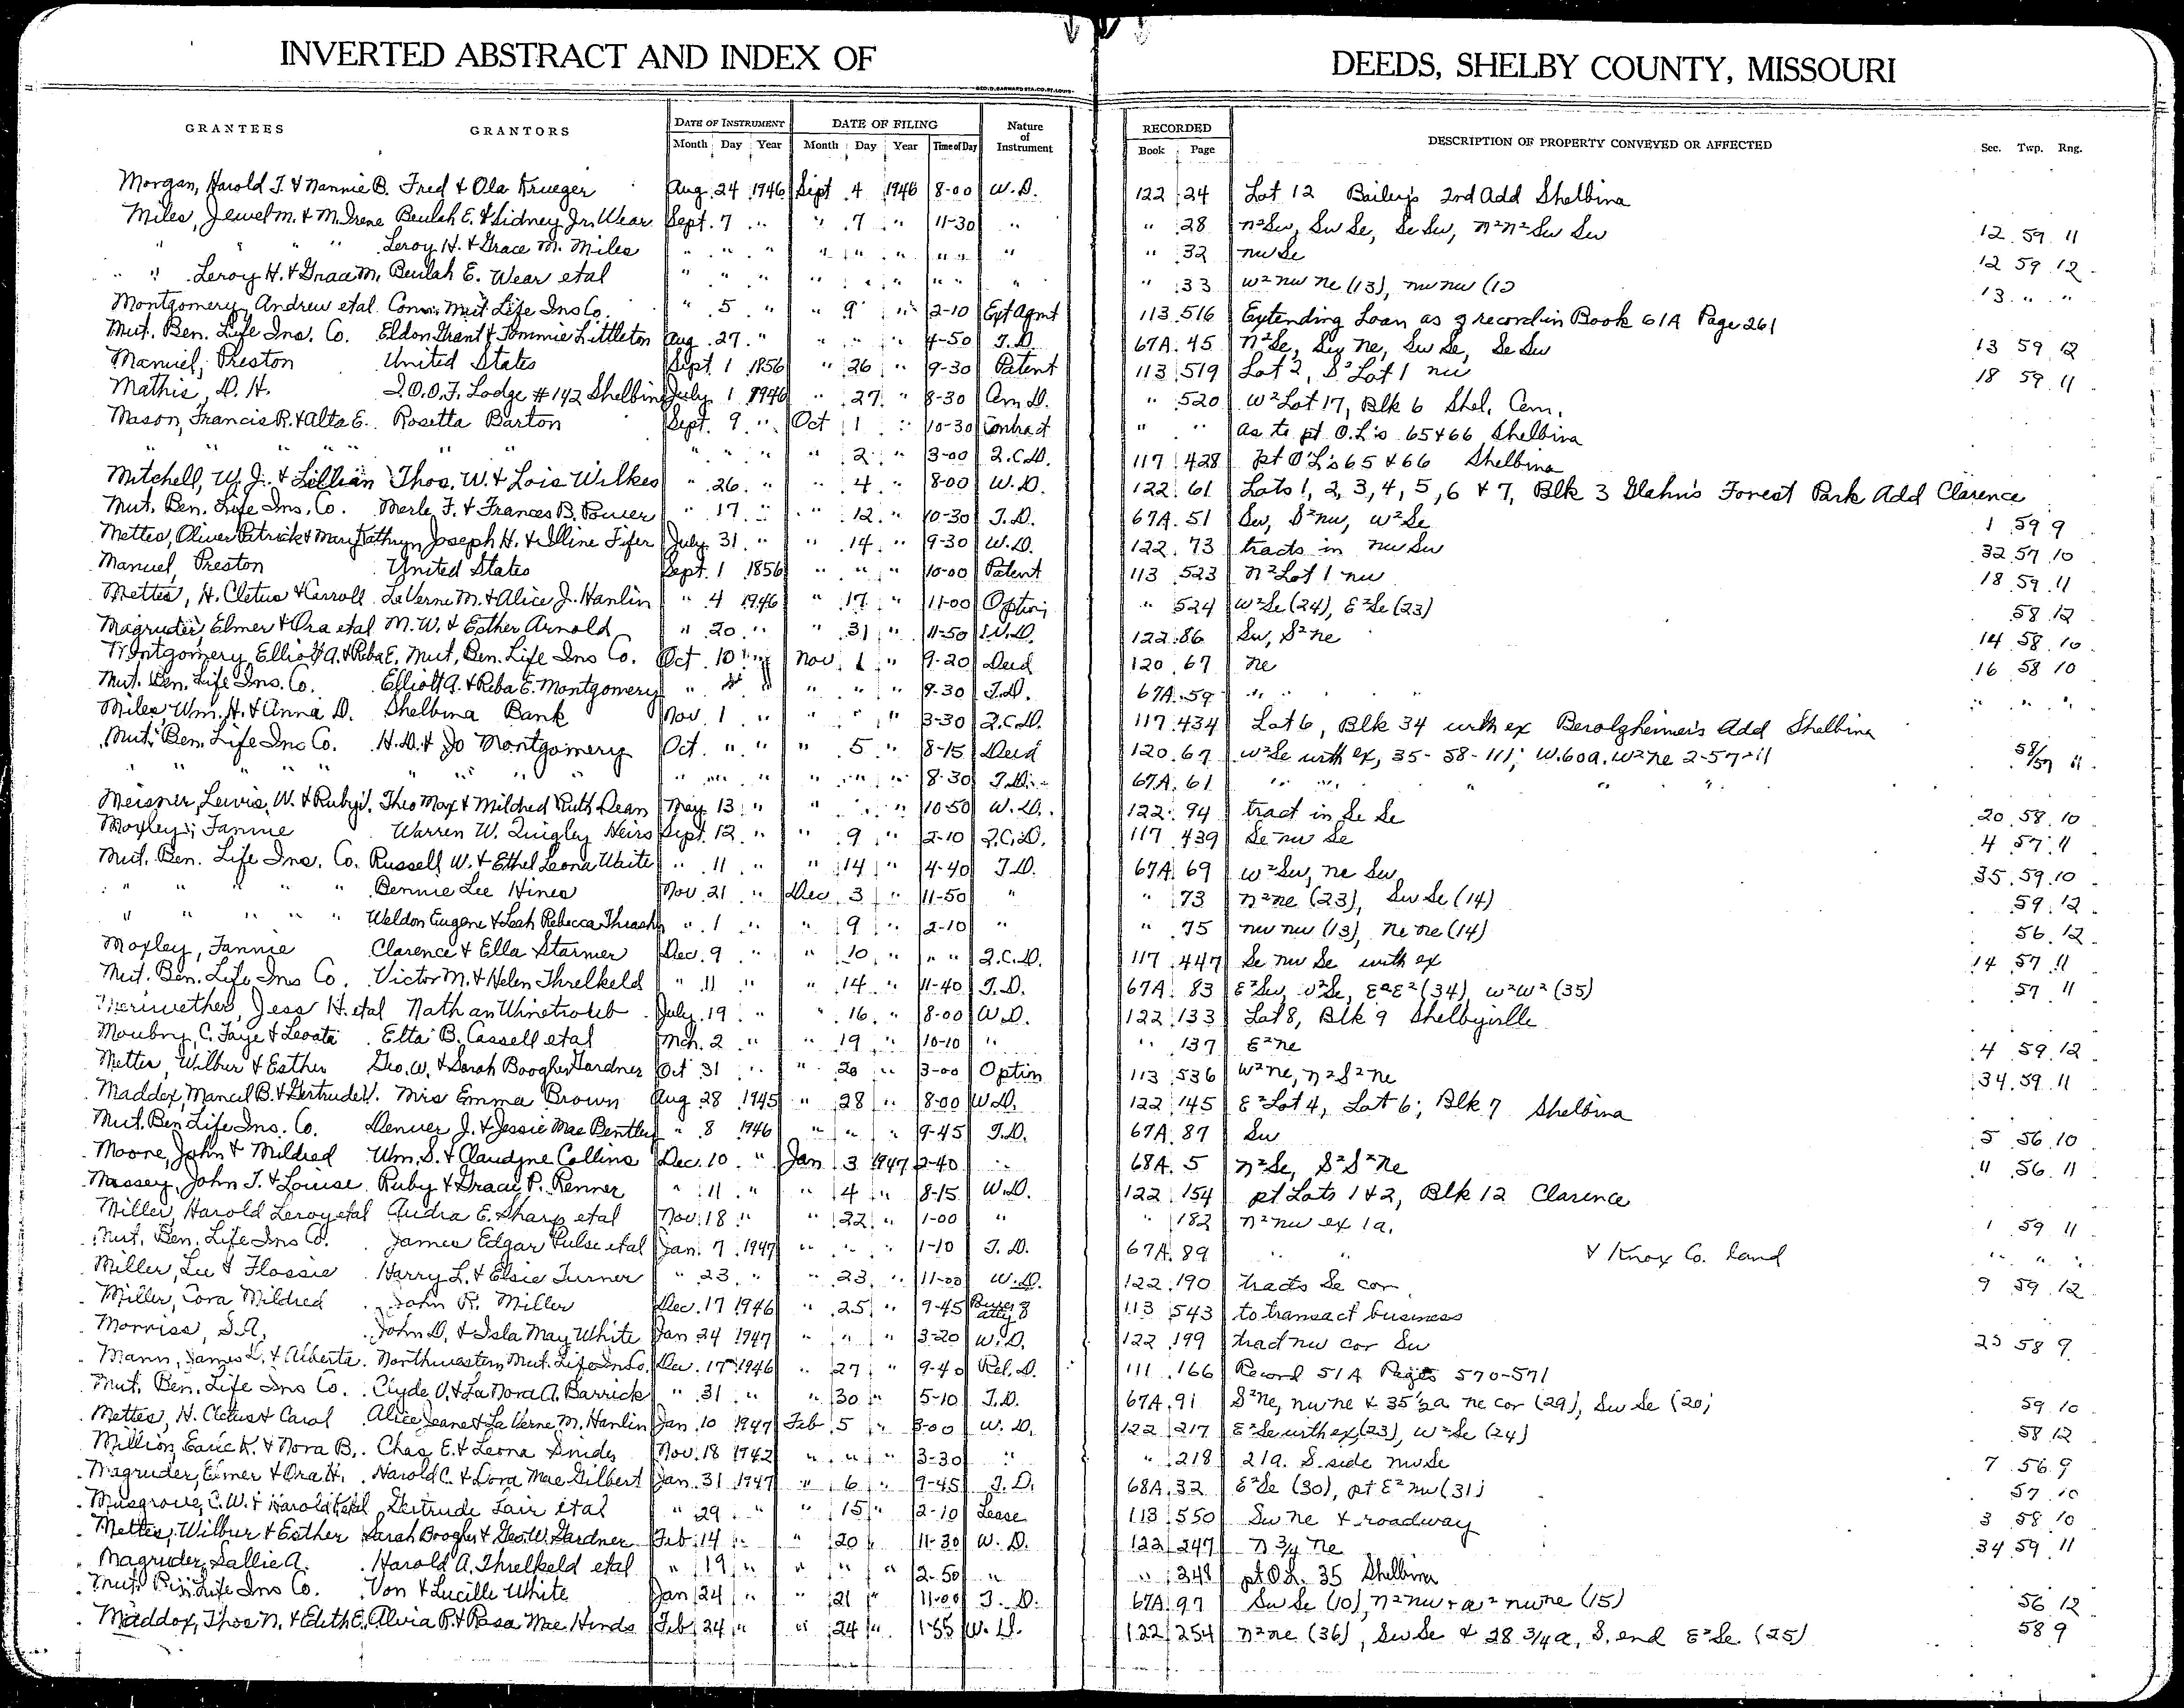 INVERTED ABSTRACT AND INDEX OF DEEDS, SHELBY COUNTY, MISSOURI
GEO. D. BARNARD STA. CO. ST. LOUIS
GRANTEES GRANTORS DATE OF INSTRUMENT DATE OF FILING Nature of Instrument RECORDED DESCRIPTION OF PROPERTY CONVEYED OR AFFECTED Sec. Twp. Rng.
Month Day Year Month Day Year Time of Day Book Page
Morgan, Harold T. & Nannie B. Fred & Ola Krueger Aug. 24 1946 Sept 4 1946 8-00 W.D. 122 24 Lot 12 Bailey's 2nd Add Shelbina
Miles, Jewel M. & M. Irene Beulah E. & Sidney Jr. Wear Sept. 7 " " 7 " 11-30 " " 28 N²Sw, Sw Se, Se Sw, N²N²Sw Sw 12 59 11
" " " " Leroy H. & Grace M. Miles " " " " " " " " " " 32 nw Se 12 59 12
" " Leroy H. & Grace M. Beulah E. Wear etal " " " " " " " " " " 33 W² nw ne (13), nw nw (13 13 " "
Montgomery, Andrew etal Conn. Mut Life Ins Co. " 5 " " 9 " 2-10 Ext Agmt 113 516 Extending Loan as g record in Book 61A Page 261
Mut. Ben. Life Ins. Co. Eldon Grant & Tommie Littleton Aug. 27 " " " " 4-50 T.D. 67A 45 N²Se, Sw Ne, Sw Se, Se Sw 13 59 12
Manuel, Preston United States Sept. 1 1856 " 26 " 9-30 Patent 113 519 Lot 2, S² Lot 1 nw 18 59 11
Mathis, D. H. I.O.O.F. Lodge #142 Shelbina July 1 1946 " 27 " 8-30 Cem D. " 520 W² Lot 17, Blk 6 Shel. Cem.
Mason, Francis R. & Alta E. Rosetta Barton Sept. 9 " Oct 1 " 10-30 Contract " " as to pt O.L's 65 & 66 Shelbina
" " " " " " " " 2 " 3-00 Q.C.D. 117 428 pt O L's 65 & 66 Shelbina
Mitchell, W. J. & Lillian Thos. W. & Lois Wilkes " 26 " " 4 " 8-00 W.D. 122 61 Lots 1, 2, 3, 4, 5, 6 & 7, Blk 3 Glahn's Forest Park Add Clarence
Mut. Ben. Life Ins. Co. Merle F. & Frances B. Power " 17 " " 12 " 10-30 T.D. 67A 51 Sw, S²nw, W²Se 1 59 9
Mettes, Oliver Patrick & Mary Kathryn Joseph H. & Illine Fifer July 31 " " 14 " 9-30 W.D. 122 73 tracts in nw Sw 32 57 10
Manuel, Preston United States Sept. 1 1856 " " " 10-00 Patent 113 523 N² Lot 1 nw 18 59 11
Mettes, H. Cletus & Carroll LaVerne M. & Alice J. Hanlin " 4 1946 " 17 " 11-00 Option " 524 W²Se (24), E²Se (23) 58 12
Magruder, Elmer & Ora etal M.W. & Esther Arnold " 20 " " 31 " 11-50 W.D. 122 86 Sw, S²ne 14 58 10
Montgomery, Elliott A. & Reba E. Mut. Ben. Life Ins Co. Oct. 10 " Nov 1 " 9-20 Deed 120 67 ne 16 58 10
Mut. Ben. Life Ins. Co. Elliott A. & Reba E. Montgomery " " " " " 9-30 T.D. 67A 59 " " " " "
Miles, Wm. H. & Anna D. Shelbina Bank Nov. 1 " " " " 3-30 Q.C.D. 117 434 Lot 6, Blk 34 with ex Berolzheimer's Add Shelbina
Mut. Ben. Life Ins Co. H.D. & Jo Montgomery Oct. " " " 5 " 8-15 Deed 120 67 W²Se with ex, 35-58-11; W.60a. W²ne 2-57-11 58/57 11
" " " " " " " " " " " 8-30 T.D. 67A 61 " " " "
Meisner, Lewis W. & Ruby J. Theo Max & Mildred Ruth Dean May 13 " " " " 10-50 W.D. 122 94 tract in Se Se 20 58 10
Moxley, Fannie Warren W. Quigley Heirs Sept. 12 " " 9 " 2-10 Q.C.D. 117 439 Se nw Se 4 57 11
Mut. Ben. Life Ins. Co. Russell W. & Ethel Leona Waite " 11 " " 14 " 4-40 T.D. 67A 69 W²Sw, ne Sw 35 59 10
" " " " " Bennie Lee Hines Nov 21 " Dec 3 " 11-50 " " 73 N²ne (23), Sw Se (14) 59 12
" " " " " Weldon Eugene & Leah Rebecca Thrasher " 1 " " 9 " 2-10 " " 75 nw nw (13), ne ne (14) 56 12
Moxley, Fannie Clarence & Ella Starmer Dec. 9 " " 10 " " " Q.C.D. 117 447 Se nw Se with ex 14 57 11
Mut. Ben. Life Ins Co. Victor M. & Helen Threlkeld " 11 " " 14 " 11-40 T.D. 67A 83 E²Sw, W²Se, E²E² (34) W²W² (35) 57 11
Meriwether, Jess H. etal Nathan Winetroub July 19 " " 16 " 8-00 W.D. 122 133 Lot 8, Blk 9 Shelbyville
Moubry, C. Faye & Leoata Etta B. Cassell etal Mch. 2 " " 19 " 10-10 " " 137 E²ne 4 59 12
Mettes, Wilbur & Esther Geo. W. & Sarah Boogher Gardner Oct 31 " " 20 " 3-00 Option 113 536 W²ne, N²S²ne 34 59 11
Maddox, Mancil B. & Gertrude V. Mrs Emma Brown Aug 28 1945 " 28 " 8-00 W.D. 122 145 E² Lot 4, Lot 6; Blk 7 Shelbina
Mut. Ben Life Ins. Co. Denver J. & Jessie Mae Bentley " 8 1946 " " " 9-45 T.D. 67A 87 Sw 5 56 10
Moore, John & Mildred Wm. S. & Claudyne Collins Dec. 10 " Jan 3 1947 2-40 " 68A 5 N²Se, S²S²Ne 11 56 11
Massey, John T. & Louise Ruby & Grace P. Renner " 11 " " 4 " 8-15 W.D. 122 154 pt Lots 1 & 2, Blk 12 Clarence
Miller, Harold Leroy etal Audra E. Sharp etal Nov. 18 " " 22 " 1-00 " " 182 N²nw ex 1a. 1 59 11
Mut. Ben. Life Ins Co. James Edgar Pulse etal Jan. 7 1947 " " " 1-10 T.D. 67A 89 " " & Knox Co. land " " "
Miller, Lee & Flossie Harry L. & Elsie Turner " 23 " " 23 " 11-00 W.D. 122 190 tracts Se cor 9 59 12
Miller, Cora Mildred John R. Miller Dec. 17 1946 " 25 " 9-45 Power of atty 113 543 to transact business
Morriss, S.A. John D. & Isla May White Jan 24 1947 " " " 3-20 W.D. 122 199 tract nw cor Sw 23 58 9
Mann, James L. & Alberta Northwestern Mut. Life Ins Co. Dec. 17 1946 " 27 " 9-40 Rel. D. 111 166 Record 51A Pages 570-571
Mut. Ben. Life Ins Co. Clyde V. & LaNora A. Barrick " 31 " " 30 " 5-10 T.D. 67A 91 S²Ne, nw ne & 35½a ne cor (29), Sw Se (20) 59 10
Mettes, H. Cletus & Carol Alice Jeane & LaVerne M. Hanlin Jan. 10 1947 Feb 5 " 3-00 W.D. 122 217 E²Se with ex (23), W²Se (24) 58 12
Million, Earic K. & Nora B. Chas E. & Leona Snider Nov. 18 1942 " " " 3-30 " " 218 21a. S. side nw Se 7 56 9
Magruder, Elmer & Ora H. Harold C. & Dora Mae Gilbert Jan. 31 1947 " 6 " 9-45 T.D. 68A 32 E²Se (30), pt E²nw (31) 57 10
Musgrove, C.W. & Harold etal Gertrude Lair etal " 29 " " 15 " 2-10 Lease 113 550 Sw ne & roadway 3 58 10
Mettes, Wilbur & Esther Sarah Boogher & Geo. W. Gardner Feb 14 " " 20 " 11-30 W.D. 122 247 N 3/4 Ne 34 59 11
Magruder, Sallie A. Harold A. Threlkeld etal " 19 " " " " 2-50 " " 248 pt O.L. 35 Shelbina
Mut. Ben Life Ins Co. Von & Lucille White Jan 24 " " 21 " 11-00 T.D. 67A 97 Sw Se (10), N²nw & nw ne (15) 56 12
Maddox, Thos N. & Edith E. Alvia R. & Rosa Mae Hinds Feb 24 " " 24 " 1-55 W.D. 122 254 N²ne (36), Sw Se & 28 3/4a, S. end E²Se (25) 58 9